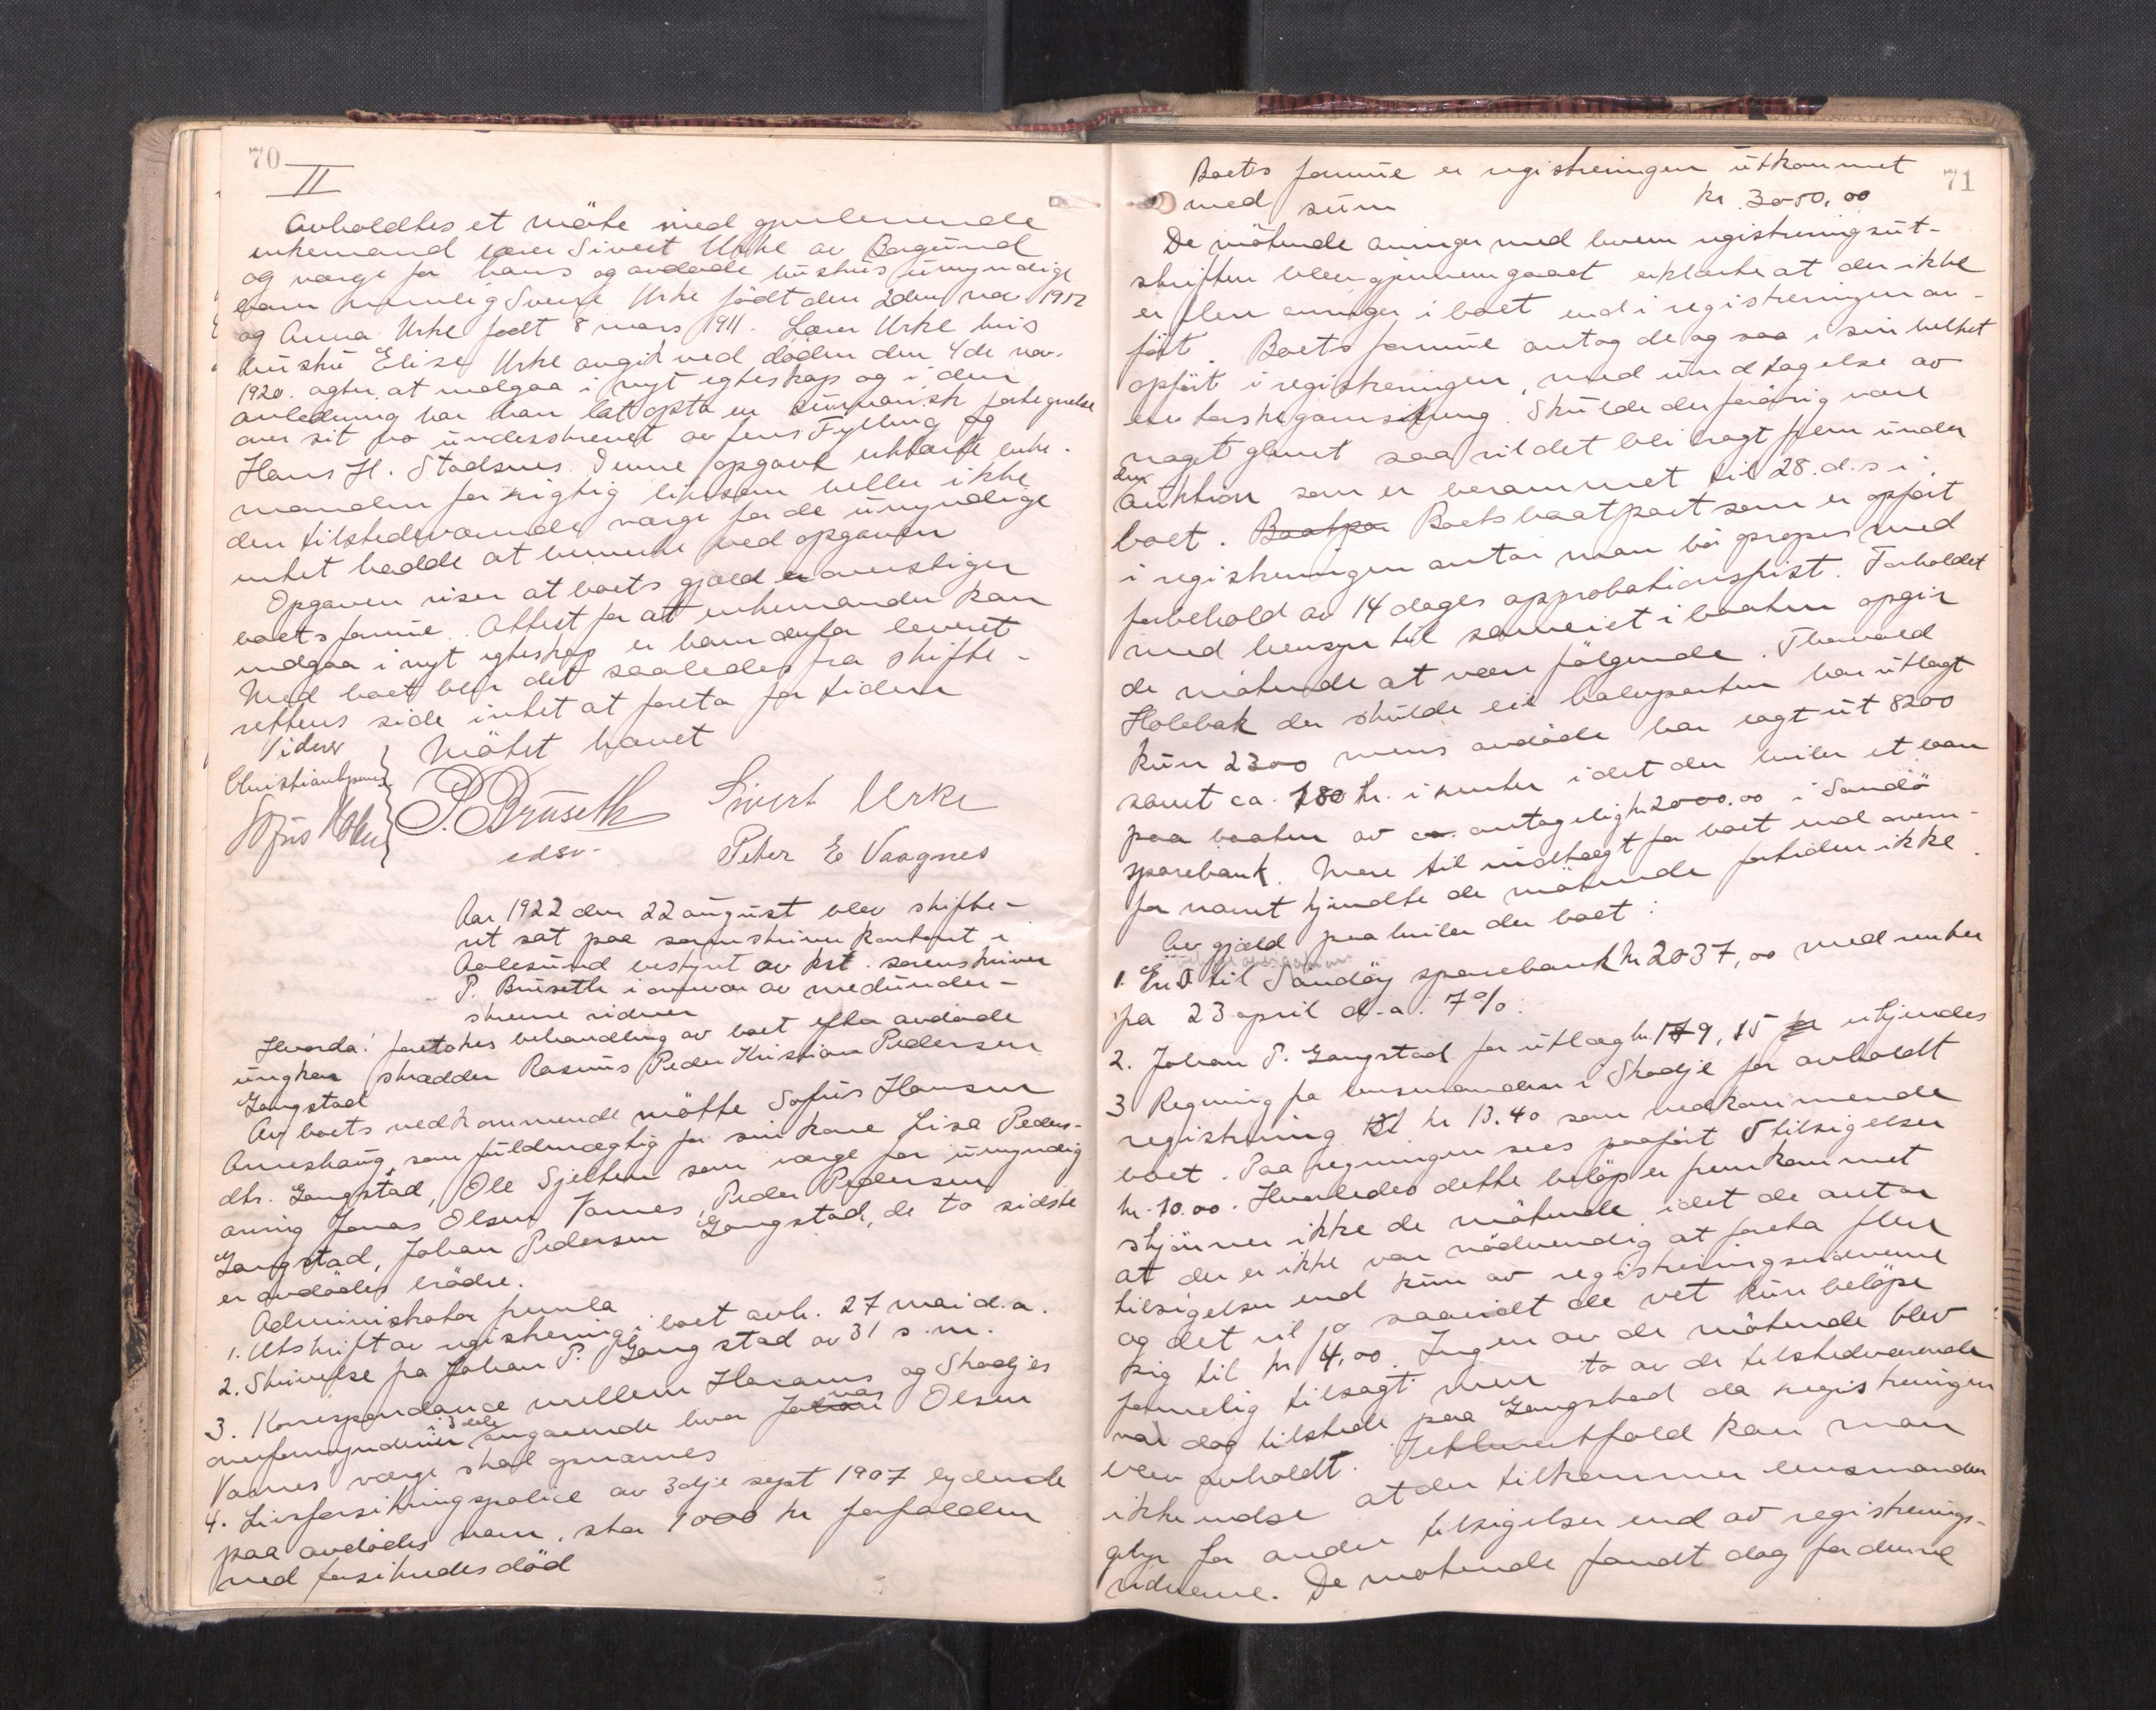 70
II
Avholdtes et möte med gjenlevende
enkemand lærer Sivert Urke av Borgund
og værge for hans og avdöde hustrus umyndige
barn nemlig Sverre Urke födt den 2den nov. 1912
og Anna Urke födt 8 mars 1911. Lærer Urke hvis
hustru Elise Urke avgik ved döden den 4de nov.
1920. agter at indgaa i nyt egteskap og i den
anledning har han latt opta en summarisk fortegnelse
over sit bo underskrevet av Jens Fylling og
Hans H. Stadsnes. Denne opgave erklærte enke-
manden for rigtig likesom heller ikke
den tilstedeværende værge for de umyndige
intet hadde at bemerke ved opgaven
Opgaven viser at boets gjæld overstiger
boets formue. Attest for at enkemanden kan
indgaa i nyt egteskap er ham derfor leveret
Med boet blir det saaledes fra skifte-
rettens side intet at foreta for tiden
Mötet hævet
Vidner
P. Brüseth Sivert Urke
edsv. Peter E Vaagnes
Aar 1922 den 22 august blev skifte-
ret sat paa sorenskriver kontoret i
Aalesund bestyrt av kst. sorenskriver
P. Brüseth i overvær av medunder-
skrevne vidner
Hvorda: foretokes behandling av boet efter avdöde
ungkar skrædder Rasmus Peder Kristian Pedersen
Gangstad
Av boets vedkommende mötte Sofus Hansen
Anneshaug, som fuldmægtig for sin kone Lisa Peders-
dtr. Gangstad, Ole Sjelten som værge for umyndig
arving Jonas Olsen Vamnes, Peder Pedersen
Gangstad, Johan Pedersen Gangstad, de to sidste
er avdödes brödre.
Administrator fremla
1. Utskrift av registrering i boet avh. 27 mai d.a.
2. Skrivelse fra Johan P. Gangstad av 31 s.m.
3. Korrespondance mellem Harams og Skodjes
overformynderier i 3 dele angaaende hvor Jonas Olsen
Vamnes værge skal opnævnes
4. Livsforsikringspolice av 3dje sept 1907 lydende
paa avdödes navn, stor 1000 kr forfalden
ved forsikredes död
71
Boets formue er registreringen utkommet
med sum kr. 3050,00
De mötende arvinger med hvem registreringsut-
skriften blev gjennemgaaet erklærte at der ikke
er flere arvinger i boet end i registreringen an-
fört. Boets formue antog de og saa i sin helhet
opfört i registreringen, med undtagelse av
en torskegarnslenk. Skulde der forövrig være
noget glemt saa vil det bli ragt frem under
den auktion som er berammet til 28. d.s i
boet. Baatpar Boets baatpart som er opfört
i registreringen antar man bör opropes med
forbehold av 14 dages approbationsfrist. Forholdet
med hensyn til sameiet i baaten opgir
de mötende at være fölgende. Thorvald
Holebak der skulde eie halvparten har utlagt
kun 2300 mens avdöde har lagt ut 8200
samt ca. 180 kr. i renter idet der hviler et laan
paa baaten av ca. antagelig kr 2000.00 i Sandö
sparebank. Mere til indtægt for boet end oven-
for nævnt kjendte de mötende fortiden ikke.
Av gjæld paahviler der boet:
1. En O til Sandöy sparebank kr 2037,00 med renter
fra 23 april d.a. 7%.
2. Johan P. Gangstad for utlæg kr. 179,15 erkjendes
3 Regning fra lensmanden i Skodje for avholdt
registrering kr 13.40 som vedkommende
boet. Paa regningen sees paafört 5 tilsigelser
kr. 10.00. Hvorledes dette belöp er fremkommet
skjönner ikke de mötende idet de antar
at der er ikke var nödvendig at foreta flere
tilsigelser end kun av registreringsvidnerne
og det vil jo saavidt de vet kun belöpe
sig til kr 4,00. Ingen av de mötende blev
formelig tilsagt men to av de tilstedeværende
var dog tilstede paa Gangstad da registreringen
blev avholdt. Iethvertfald kan man
ikke indse at der tilkommer lensmanden
gebyr for andre tilsigelser end av registrerings-
vidnerne. De mötende fandt dog for denne